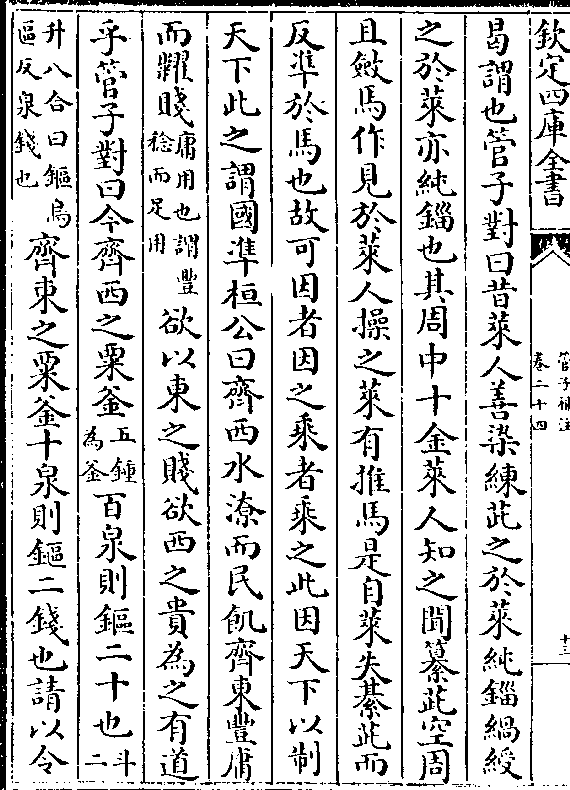 欽定四庫全書
管子補注
卷二十四
十三
曷謂也管子對曰昔萊人善染練茈之於萊純錙緺綬
之於萊亦純錙也其周中十金萊人知之聞纂茈空周
且斂馬作見於萊人操之萊有推馬是自萊失綦茈而
反準於馬也故可因者因之乘者乘之此因天下以制
天下此之謂國準桓公曰齊西水潦而民飢齊東豐庸
而糶賤庸用也謂豐稔而足用欲以東之賤欲西之貴為之有道
乎管子對曰今齊西之粟釜五鍾為釜百泉則鏂二十也斗二
升八合曰鏂烏區反泉錢也齊東之粟釜十泉則鏂二錢也請以令